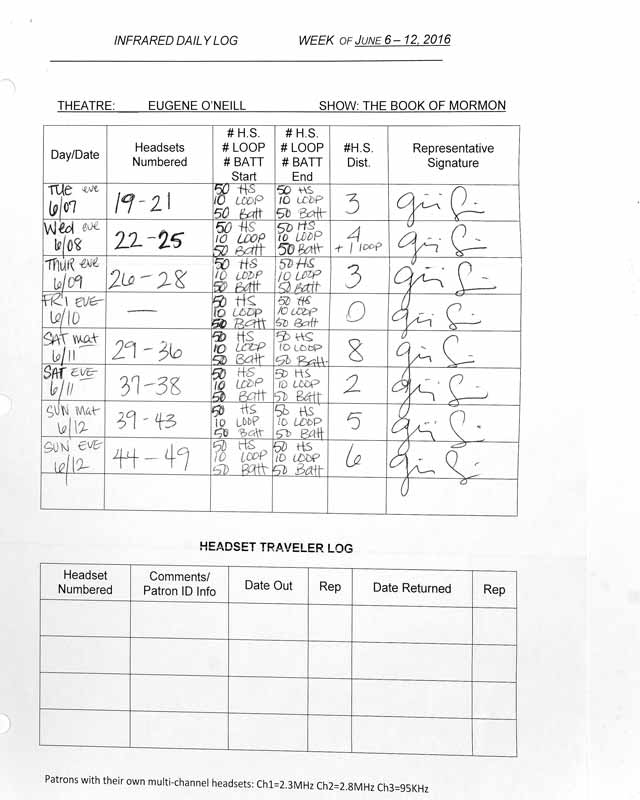 INFRARED DAILY LOG WEEK OF JUNE 6 – 12, 2016
THEATRE: EUGENE O'NEILL SHOW: THE BOOK OF MORMON
Day/Date
Headsets
Numbered
# H.S.
# LOOP
# BATT
Start
# H.S.
# LOOP
# BATT
End
#H.S.
Dist.
Representative
Signature
TUE eve
6/07
19-21
50 HS
10 LOOP
50 Batt
50 HS
10 LOOP
50 Batt
3
Wed eve
6/08
22-25
50 HS
10 LOOP
50 Batt
50 HS
10 LOOP
50 Batt
4
+1 loop
THUR eve
6/09
26-28
50 HS
10 LOOP
50 Batt
50 HS
10 LOOP
50 Batt
3
FRI EVE
6/10
—
50 HS
10 LOOP
50 Batt
50 HS
10 LOOP
50 Batt
0
SAT mat
6/11
29-36
50 HS
10 LOOP
50 Batt
50 HS
10 LOOP
50 Batt
8
SAT EVE
6/11
37-38
50 HS
10 LOOP
50 Batt
50 HS
10 LOOP
50 Batt
2
SUN mat
6/12
39-43
50 HS
10 LOOP
50 Batt
50 HS
10 LOOP
50 Batt
5
SUN EVE
6/12
44-49
50 HS
10 LOOP
50 Batt
50 HS
10 LOOP
50 Batt
6
HEADSET TRAVELER LOG
Headset
Numbered
Comments/
Patron ID Info
Date Out
Rep
Date Returned
Rep
Patrons with their own multi-channel headsets: Ch1=2.3MHz Ch2=2.8MHz Ch3=95KHz